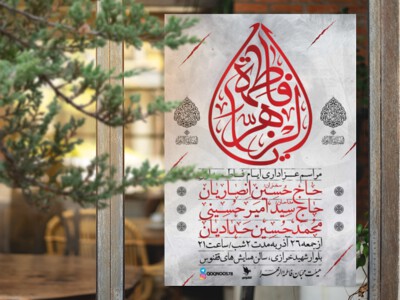 فاطمة الزهرا
مراسم عزاداری ایام فاطمیه
سخنران:
حاج حسین انصاریان
حاج سید امیر حسینی
محمدحسین حدادیان
از جمعه ۲۶ آذر به مدت ۲ شب، ساعت ۲۱
بلوار شهید خرازی، سالن همایش های ققنوس
هیئت محبان فاطمة الزهرا
QOQNOOS.IR